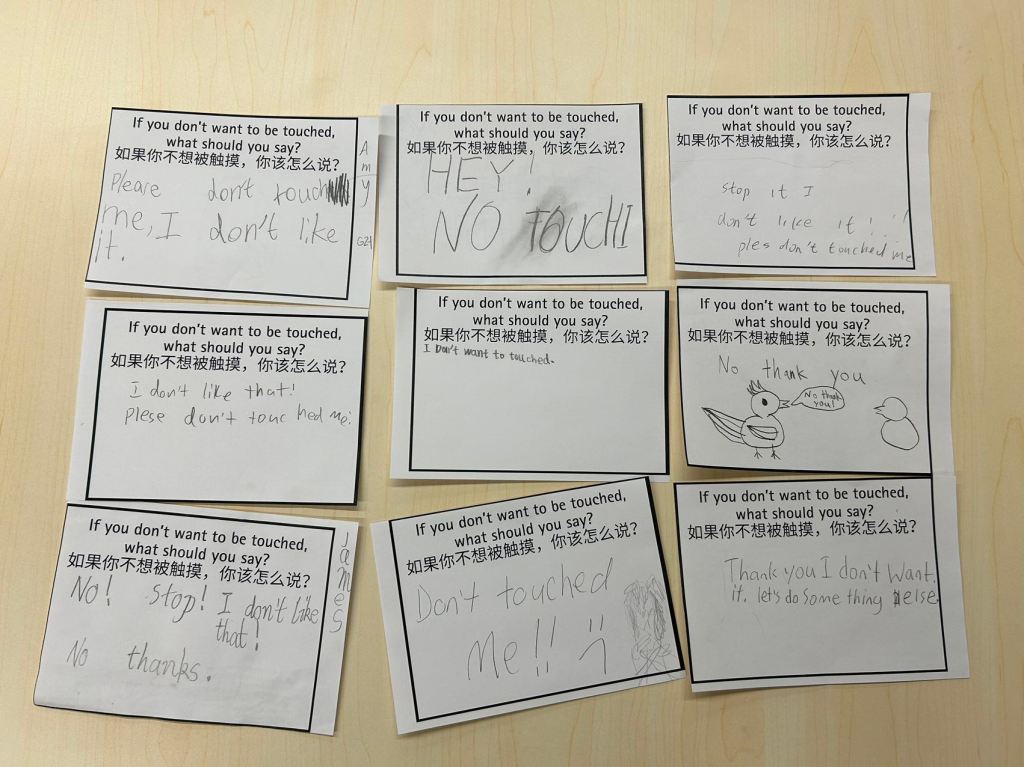 If you don't want to be touched,
what should you say?
如果你不想被触摸，你该怎么说？
Please don't touch
me, I don't like
it.
Amy
G2A
If you don't want to be touched,
what should you say?
如果你不想被触摸，你该怎么说？
HEY!
NO TOUCH!
If you don't want to be touched,
what should you say?
如果你不想被触摸，你该怎么说？
stop it I
don't like it!!!
ples don't touched me
If you don't want to be touched,
what should you say?
如果你不想被触摸，你该怎么说？
I don't like that!
plese don't touched me!
If you don't want to be touched,
what should you say?
如果你不想被触摸，你该怎么说？
I Don't want to touched.
If you don't want to be touched,
what should you say?
如果你不想被触摸，你该怎么说？
No thank you
No thank
you!
If you don't want to be touched,
what should you say?
如果你不想被触摸，你该怎么说？
No! Stop! I don't like
that!
No thanks.
James
If you don't want to be touched,
what should you say?
如果你不想被触摸，你该怎么说？
Don't touched
Me!! :(
If you don't want to be touched,
what should you say?
如果你不想被触摸，你该怎么说？
Thank you I don't Want
it. let's do Some thing else